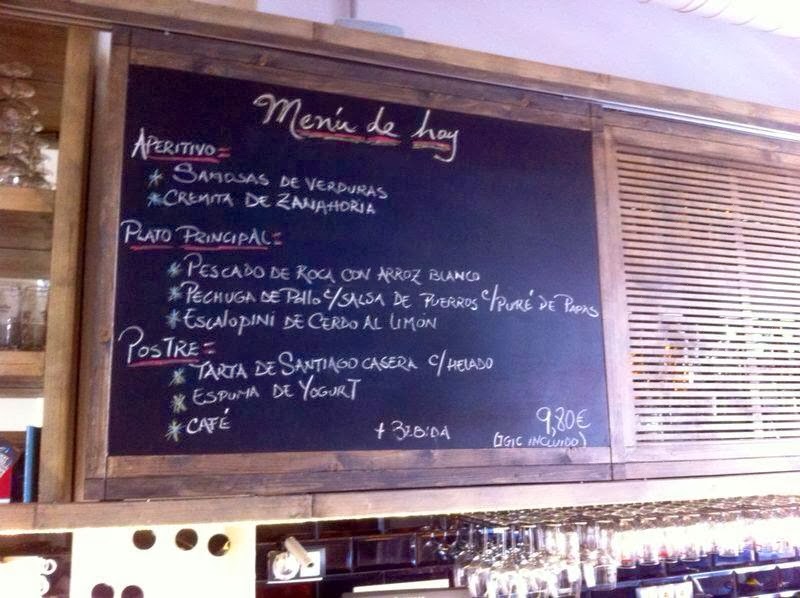 Menú de hoy
APERITIVO=
* SAMOSAS DE VERDURAS
* CREMITA DE ZANAHORIA
PLATO PRINCIPAL=
* PESCADO DE ROCA CON ARROZ BLANCO
* PECHUGA DE POLLO C/SALSA DE PUERROS C/PURÉ DE PAPAS
* ESCALOPINI DE CERDO AL LIMÓN
POSTRE=
* TARTA DE SANTIAGO CASERA C/HELADO
* ESPUMA DE YOGURT
* CAFÉ
+ BEBIDA
9,80€
(IGIC INCLUIDO)